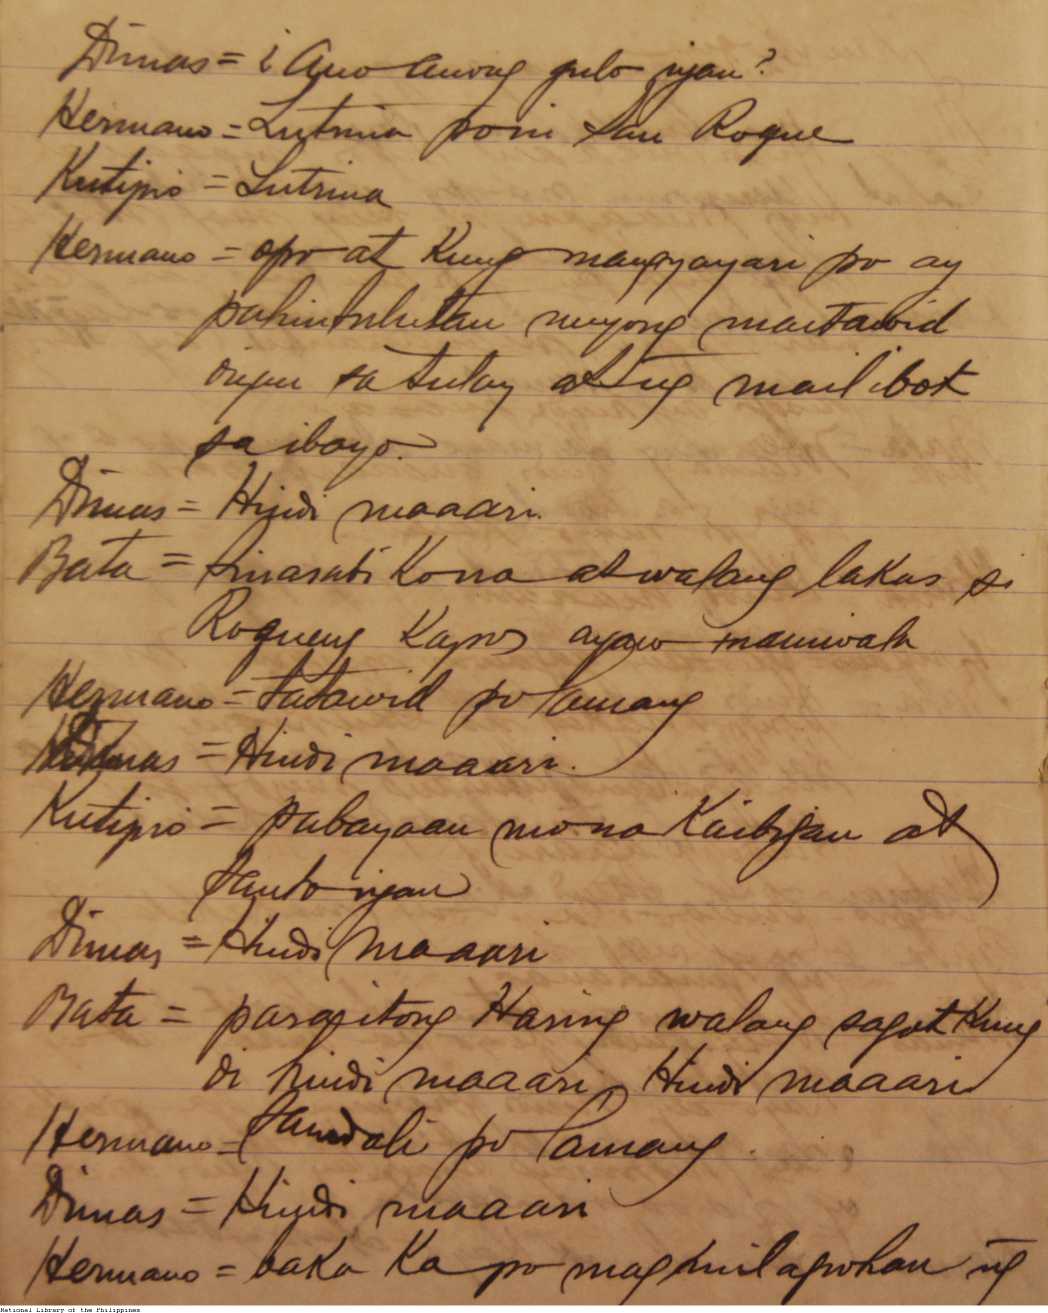 Dimas = ¿Ano anong gulo iyan?
Hermano = Lutrina po ni San Roque
Kutipio = Lutrina
Hermano = opo at kung mangyayari po ay
pahintulutan ninyong maitawid
sa tulay at ng mailibot
sa ibayo.
Dimas = Hindi maaari.
Bata = Sinasabi ko na at walang lakas si
Roqueng Kapos ayaw maniwala
Hermano = tatawid po lamang
Dimas = Hindi maaari.
Kutipio = pabayaan mo na Kaibigan at
Santo iyan
Dimas = Hindi maaari
Bata = para itong Haring walang sagot kung
di hindi maaari, Hindi maaari
Hermano = Sandali po lamang.
Dimas = Hindi maaari
Hermano = baka ka po maghimlagrohan ng
National Library of the Philippines